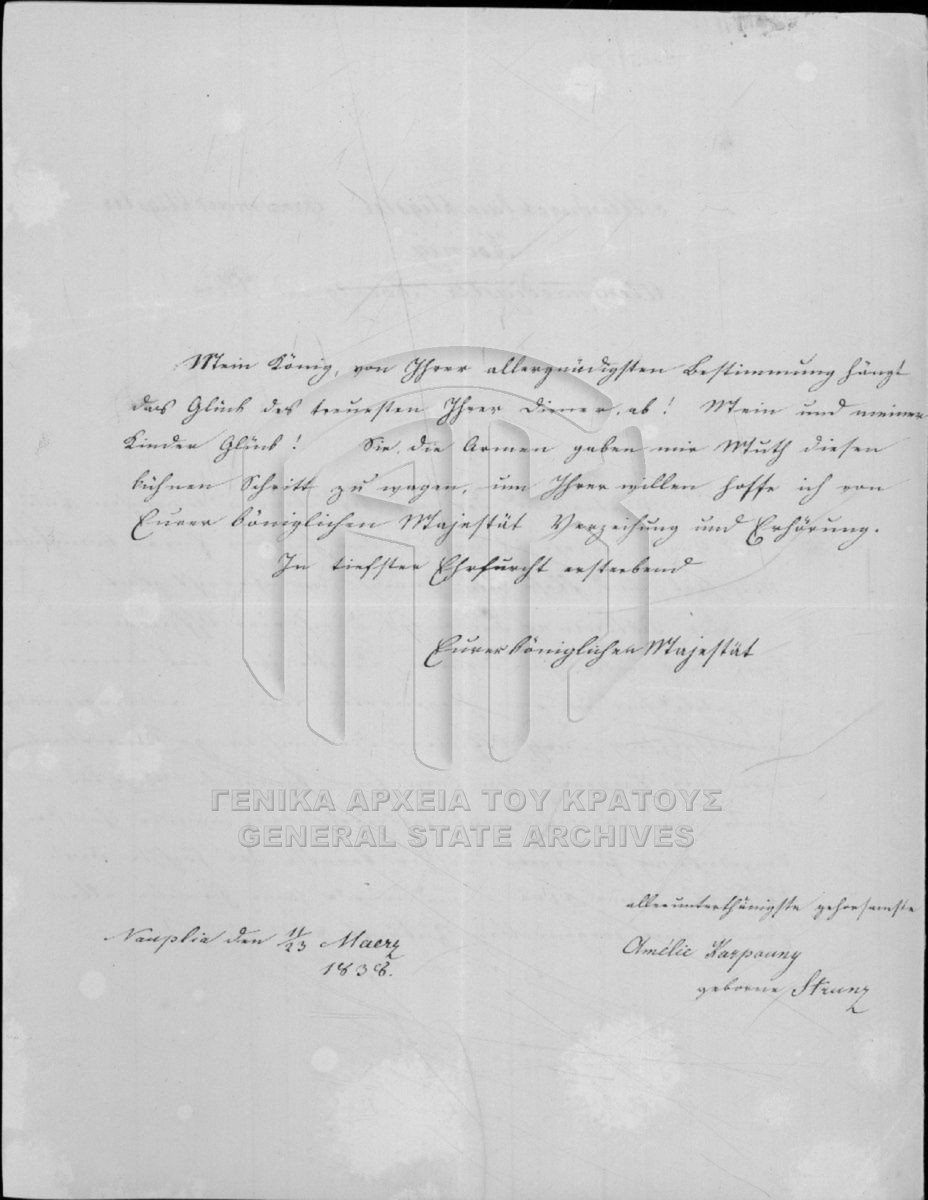 Mein König, von Ihrer allergnädigsten Bestimmung hängt
das Glück des treuesten Ihrer Diener, ab! Mein und meiner
Kinder Glück! Sie, die Armen gaben mir Muth diesen
kühnen Schritt zu wagen, um Ihrer willen hoffe ich von
Eurer königlichen Majestät Verzeihung und Erhörung.
In tiefster Ehrfurcht ersterbend
Eurer königlichen Majestät
ΓΕΝΙΚΑ ΑΡΧΕΙΑ ΤΟΥ ΚΡΑΤΟΥΣ
GENERAL STATE ARCHIVES
allerunterthänigste gehorsamste
Nauplia den 11/23 Maerz
1838.
Amélie
geborne Strunz